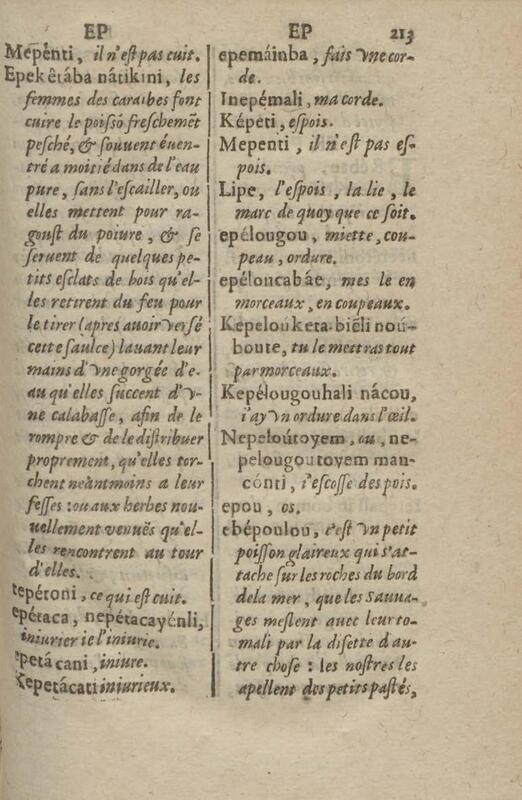 EP
EP
213
Mepénti, il n'est pas cuit.
Epekêtába nátikini, les
femmes des caraibes font
cuire le poissõ freschemẽt
pesché, & souuent éuen-
tré a moitié dans de l'eau
pure, sans l'escailler, ou
elles mettent pour ra-
goust du poiure, & se
seruent de quelques pe-
tits esclats de bois qu'el-
les retirent du feu pour
le tirer (apres auoir versé
cette saulce) lauant leur
mains d'vne gorgée d'e-
au qu'elles succent d'v-
ne calabasse, afin de le
rompre & de le distribuer
proprement, qu'elles tor-
chent neãntmoins a leur
fesses: ou aux herbes nou-
uellement venuës qu'el-
les rencontrent au tour
d'elles.
tepétoni, ce qui est cuit.
epétaca, nepétacayénli,
iniurier ie l'iniurie.
epetá cani, iniure.
Kepetácati iniurieux.
epemáinba, fais vne cor-
de.
Inepémali, ma corde.
Képeti, espois.
Mepenti, il n'est pas es-
pois.
Lipe, l'espois, la lie, le
marc de quoy que ce soit.
epélougou, miette, cou-
peau, ordure.
epéloncabáe, mes le en
morceaux, en coupeaux.
Kepelouketa biẽli noú-
boute, tu le mettras tout
par morceaux.
Kepélougouhali nácou,
i'ay vn ordure dans l'œil.
Nepeloútoyem, ou, ne-
pelougoutoyem man-
cónti, i'escosse des pois.
epou, os.
ebépoulou, c'est vn petit
poisson glaireux qui s'at-
tache sur les roches du bord
dela mer, que les Sauua-
ges meslent auec leur to-
mali par la disette d'au-
tre chose: les nostres les
apellent des petits pastés,